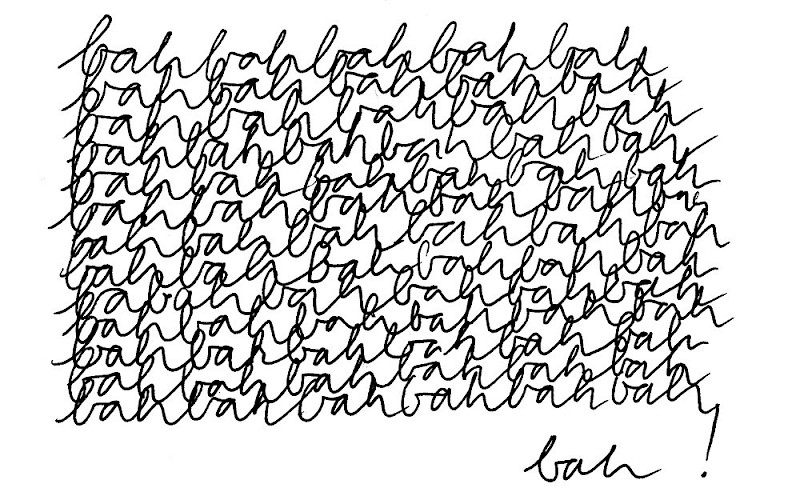 bah bah bah bah bah
bah bah bah bah bah
bah bah bah bah bah
bah bah bah bah bah bah
bah bah bah bah bah bah
bah bah bah bah bah bah
bah bah bah bah bah bah
bah bah bah bah bah bah
ba bah bah bah bah bah
bah bah bah bah bah bah
bah bah bah bah bah bah
bah bah bah bah bah bah
bah bah bah bah bah bah
bah !